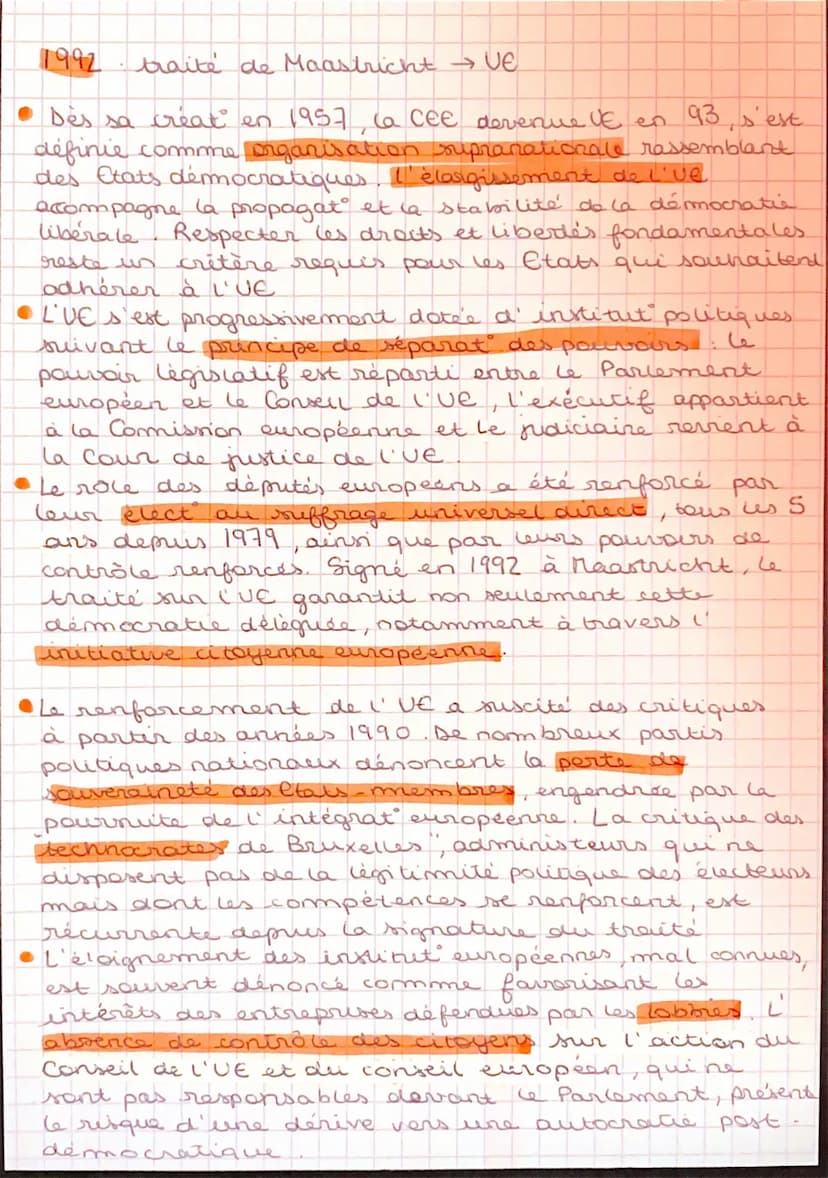 1992 . traité de Maastricht → UE
• Dès sa créat° en 1957, la CEE devenue UE en 93, s'est
définie commme organisation supranationale rassemblant
des Etats démocratiques. L'élargissement de l'UE
accompagne la propagat° et la stabilité de la démocratie
libérale. Respecter les droits et libertés fondamentales
reste un critère requis pour les Etats qui souhaitent
adhérer à l'UE
• L'UE s'est progressivement dotée d'institut° politiques
suivant le principe de séparat° des pouvoirs : le
pouvoir législatif est réparti entre le Parlement
européen et le Conseil de l'UE, l'exécutif appartient
à la Commission européenne et le judiciaire revient à
la Cour de justice de l'UE.
• Le rôle des députés européens a été renforcé par
leur élect° au suffrage universel direct, tous les 5
ans depuis 1979, ainsi que par leurs pouvoirs de
contrôle renforcés. Signé en 1992 à Maastricht, le
traité sur l'UE garantit non seulement cette
démocratie déléguée, notamment à travers l'
initiative citoyenne européenne.
• Le renforcement de l'UE a suscité des critiques
à partir des années 1990. De nombreux partis
politiques nationaux dénoncent la perte de
souveraineté des Etats-membres, engendrée par la
poursuite de l'intégrat° européenne. La critique des
"technocrates de Bruxelles", administeurs qui ne
disposent pas de la légitimité politique des électeurs
mais dont les compétences se renforcent, est
récurrente depuis la signature du traité
• L'éloignement des institut° européennes, mal connues,
est souvent dénoncé commme favorisant les
intérêts des entreprises défendues par les lobbies. L'
absence de contrôle des citoyens sur l'action du
Conseil de l'UE et du conseil européen, qui ne
sont pas responsables devant le Parlement, présent
le risque d'une dérive vers une autocratie post-
démocratique.